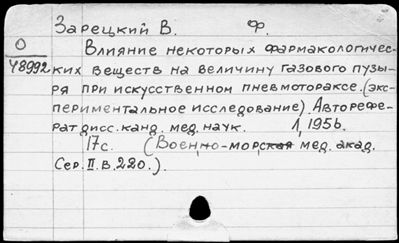 Зарецкий В. Ф.
О
48992
Влияние некоторых фармакологичес-
ких веществ на величину газового пузы-
ря при искусственном пневмотораксе. (экс-
периментальное исследование). Авторефе-
рат дисс. канд. мед. наук. Л, 1956.
17с. (Военно-морская мед. акад.
Сер. II. В. 220.).